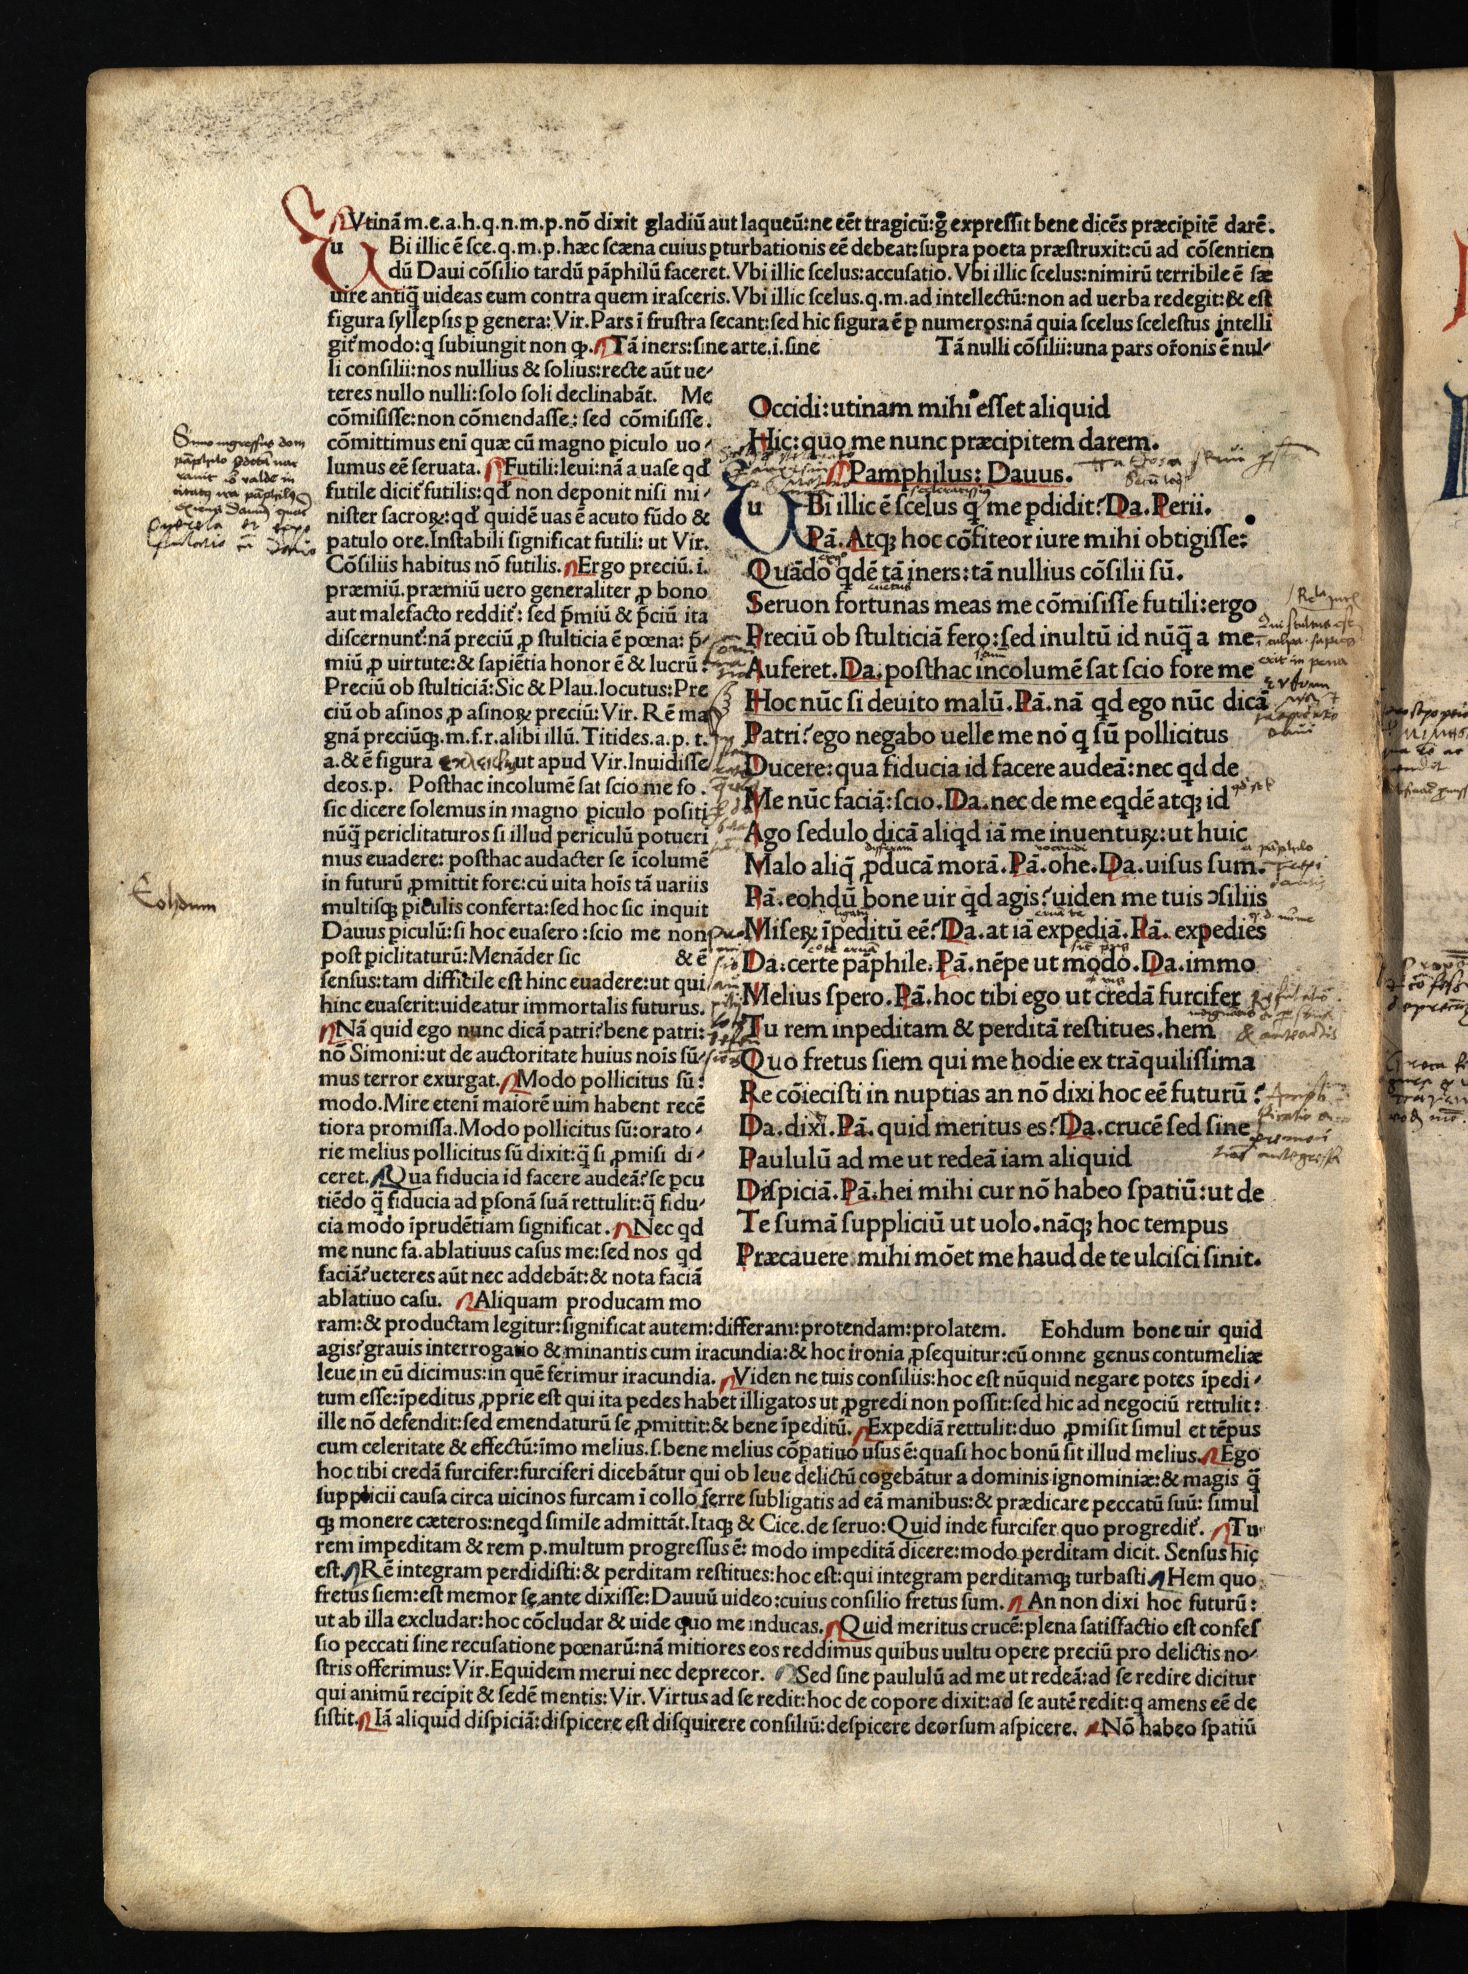 Vtinā m.e.a.h.q.n.m.p.nō dixit gladiū aut laqueū:ne eēt tragicū:ꝗ̄ expressit bene dicēs præcipitē darē.
uBi illic ē sce.q.m.p.hæc scæna cuius ꝑturbationis eē debeat:supra poeta præstruxit:cū ad cōsentien
dū Daui cōsilio tardū pāphilū faceret.Vbi illic scelus:accusatio.Vbi illic scelus:nimirū terribile ē sæ
uire antiq̄ uideas eum contra quem irasceris.Vbi illic scelus.q.m.ad intellectū:non ad uerba redegit:& est
figura syllepsis ꝑ genera:Vir.Pars ī frustra secant:sed hic figura ē ꝑ numeros:nā quia scelus scelestus intelli
git᷑ modo:q subiungit non ꝙ. Tā iners:sine arte.i.sine Tā nulli cōsilii:una pars or̄onis ē nul⸗
li consilii:nos nullius & solius:recte aūt ue⸗
teres nullo nulli:solo soli declinabāt. Me
cōmisisse:non cōmendasse: sed cōmisisse.
cōmittimus enī quæ cū magno ꝑiculo uo⸗
lumus eē seruata. Futili:leui:nā a uase qd̄
futile dicit᷑ futilis:qd̄ non deponit nisi mi⸗
nister sacroꝝ:qd̄ quidē uas ē acuto fūdo &
patulo ore.Instabili significat futili: ut Vir.
Cōsiliis habitus nō futilis. Ergo preciū.i.
præmiū.præmiū uero generaliter ꝓ bono
aut malefacto reddit᷑: sed p̄miū & p̄ciū ita
discernunt᷑:nā preciū ꝓ stulticia ē pœna: p̄⸗
miū ꝓ uirtute:& sapiētia honor ē & lucrū:
Preciū ob stulticiā:Sic & Plau.locutus:Pre
ciū ob asinos ꝓ asinoꝝ preciū:Vir. Rē ma
gnā preciūqꝫ.m.f.r.alibi illū.Titides.a.p.t.
a.& ē figura ut apud Vir.Inuidisse
deos.p. Posthac incolumē sat scio me fo.
sic dicere solemus in magno ꝑiculo positi
nūq̄ periclitaturos si illud periculū potueri
mus euadere: posthac audacter se īcolumē
in futurū ꝓmittit fore:cū uita hoīs tā uariis
multisqꝫ ꝑiculis conferta:sed hoc sic inquit
Dauus ꝑiculū:si hoc euasero:scio me non
post ꝑiclitaturū:Menāder sic & ē
sensus:tam difficile est hinc euadere:ut qui
hinc euaserit:uideatur immortalis futurus.
Nā quid ego nunc dicā patri?bene patri:
nō Simoni:ut de auctoritate huius noīs sū⸗
mus terror exurgat. Modo pollicitus sū:
modo.Mire etenī maiorē uim habent recē
tiora promissa.Modo pollicitus sū:orato⸗
rie melius pollicitus sū dixit:q̄ si ꝓmisi di⸗
ceret. Qua fiducia id facere audeā?se ꝑcu
tiēdo q̄ fiducia ad ꝑsonā suā rettulit:q̄ fidu⸗
cia modo īprudētiam significat. Nec qd
me nunc fa.ablatiuus casus me:sed nos qd
faciā?ueteres aūt nec addebāt:& nota faciā
ablatiuo casu. Aliquam producam mo
Occidi:utinam mihi esset aliquid
Hic:quo me nunc præcipitem darem.
Pamphilus: Dauus.
uBi illic ē scelus q me ꝑdidit?Da.Perii.
Pā.Atqꝫ hoc cōfiteor iure mihi obtigisse:
Quādo qdē tā iners:tā nullius cōsilii sū.
Seruon fortunas meas me cōmisisse futili:ergo
Preciū ob stulticiā fero:sed inultū id nūq̄ a me
Auferet.Da.posthac incolumē sat scio fore me
Hoc nūc si deuito malū.Pā.nā qd ego nūc dicā
Patri?ego negabo uelle me nō q sū pollicitus
Ducere:qua fiducia id facere audeā:nec qd de
Me nūc faciā:scio.Da.nec de me eqdē atqꝫ id
Ago sedulo dicā aliqd iā me inuentuꝝ:ut huic
Malo aliq̄ ꝓducā morā.Pā.ohe.Da.uisus sum.
Pā.eohdū bone uir qd agis?uiden me tuis ɔsiliis
Miseꝝ īpeditū eē?Da.at iā expediā.Pā.expedies
Da:certe pāphile.Pā.nēpe ut modo.Da.immo
Melius spero.Pā.hoc tibi ego ut credā furcifer
Tu rem inpeditam & perditā restitues.hem
Quo fretus siem qui me hodie ex trāquilissima
Re cōiecisti in nuptias an nō dixi hoc eē futurū?
Da.dixi.Pā.quid meritus es?Da.crucē sed sine
Paululū ad me ut redeā iam aliquid
Dispiciā.Pā.hei mihi cur nō habeo spatiū:ut de
Te sumā suppliciū ut uolo.nāqꝫ hoc tempus
Præcauere mihi mōet me haud de te ulcisci sinit.
ram:& productam legitur:significat autem:differam:protendam:prolatem. Eohdum bone uir quid
agis?grauis interrogatio & minantis cum iracundia:& hoc ironia ꝓsequitur:cū omne genus contumeliæ
leue in eū dicimus:in quē ferimur iracundia. Viden ne tuis consiliis:hoc est nūquid negare potes īpedi⸗
tum esse:īpeditus ꝓprie est qui ita pedes habet illigatos ut ꝓgredi non possit:sed hic ad negociū rettulit:
ille nō defendit:sed emendaturū se ꝓmittit:& bene īpeditū. Expediā rettulit:duo ꝓmisit simul et tēpus
cum celeritate & effectū:īmo melius.s.bene melius cōpatiuo usus ē:quasi hoc bonū sit illud melius. Ego
hoc tibi credā furcifer:furciferi dicebātur qui ob leue delictū cogebātur a dominis ignominiæ:& magis q̄
supplicii causa circa uicinos furcam ī collo ferre subligatis ad eā manibus:& prædicare peccatū suū: simul
qꝫ monere cæteros:neqd simile admittāt.Itaqꝫ & Cice.de seruo:Quid inde furcifer quo progredit᷑. Tu
rem impeditam & rem p.multum progressus ē: modo impeditā dicere:modo perditam dicit. Sensus hic
est. Rē integram perdidisti:& perditam restitues:hoc est:qui integram perditamqꝫ turbasti Hem quo
fretus siem:est memor se ante dixisse:Dauuū uideo:cuius consilio fretus sum. An non dixi hoc futurū:
ut ab illa excludar:hoc cōcludar & uide quo me inducas. Quid meritus crucē:plena satisfactio est confes
sio peccati sine recusatione pœnarū:nā mitiores eos reddimus quibus uultu opere preciū pro delictis no⸗
stris offerimus:Vir.Equidem merui nec deprecor. Sed sine paululū ad me ut redeā:ad se redire dicitur
qui animū recipit & sedē mentis:Vir.Virtus ad se redit:hoc de copore dixit:ad se autē redit:q amens eē de
sistit. Iā aliquid dispiciā:dispicere est disquirere consiliū:despicere deorsum aspicere. Nō habeo spatiū
Eohdum